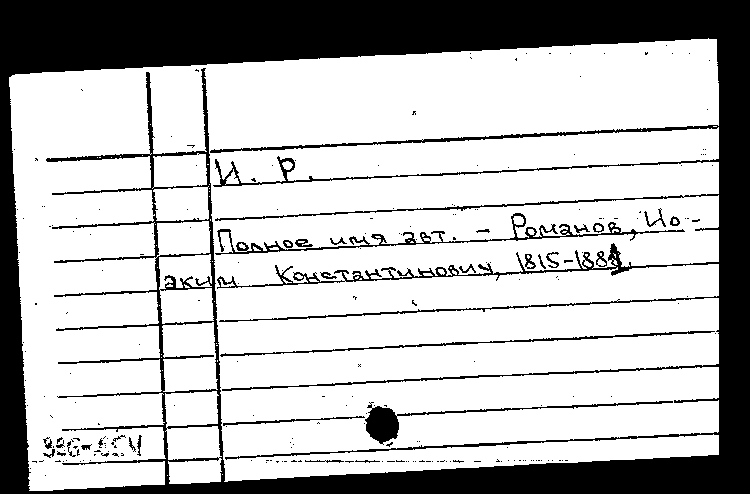 И. Р.
Полное имя авт. - Романов, Ио-
аким Константинович, 1815-1881